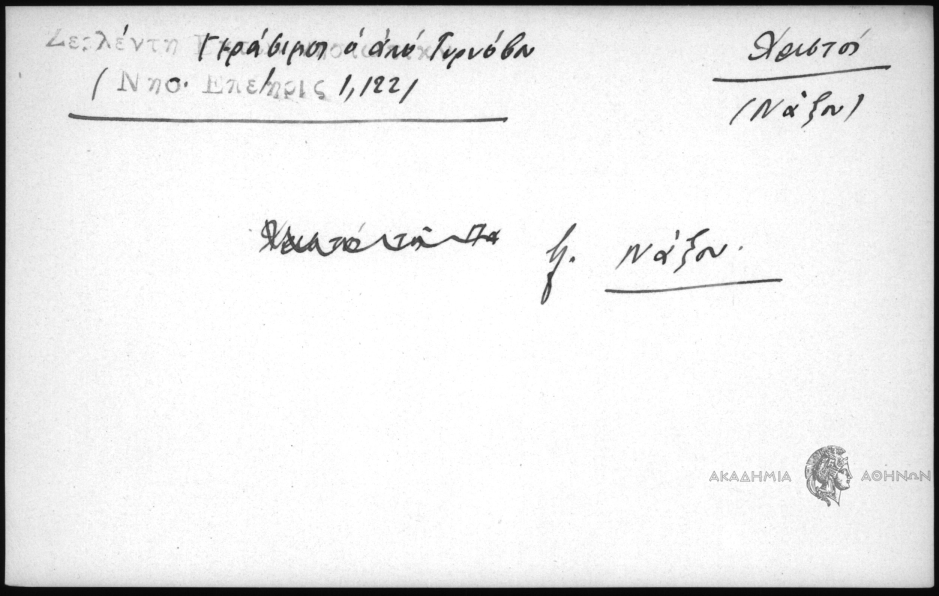 Ζερλέντη Γεράσιμος ὁ ἀπό Τυρνόβου
(Νησ. Επετηρις 1, 122)
Χριστοί
(Νάξου)
Νάξου.
ΑΚΑΔΗΜΙΑ ΑΘΗΝΩΝ